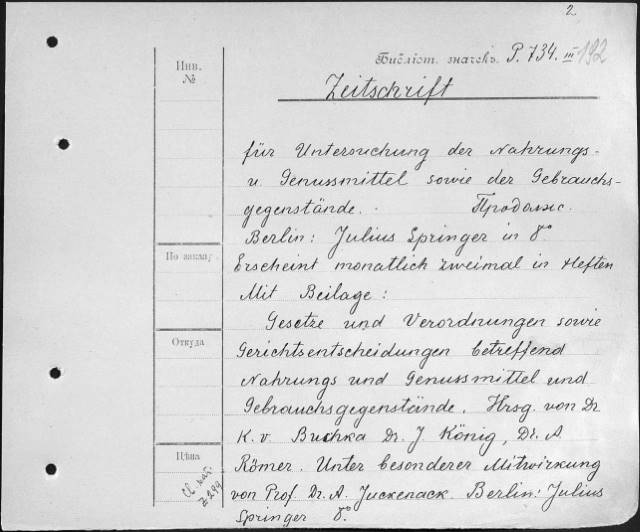 2
Инв.
№
Библіот. значекъ. P. 734. III 192
Zeitschrift
für Untersuchung der Nahrungs-
u. Genussmittel sowie der Gebrauchs-
gegenstände. Продолж.
Berlin: Julius Springer in 8°
По заказу.
Erscheint monatlich zweimal in Heften
Mit Beilage:
Gesetze und Verordnungen sowie
Откуда
Gerichtsentscheidungen betreffend
Nahrungs und Genussmittel und
Gebrauchsgegenstände. Hrsg. von Dr
K. v. Buchka Dr. J König, Dr. A
Цѣна
Römer. Unter besonderer Mitwirkung
von Prof. Dr. A. Juckenack. Berlin: Julius
Springer 8°.